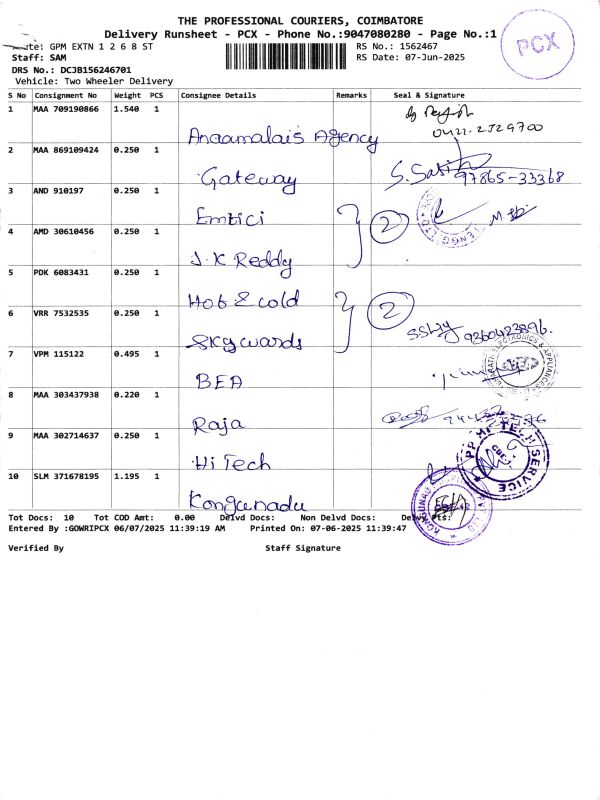 THE PROFESSIONAL COURIERS, COIMBATORE
Delivery Runsheet - PCX - Phone No.:9047080280 - Page No.:1
Route: GPM EXTN 1 2 6 8 ST
RS No.: 1562467
Staff: SAM
RS Date: 07-Jun-2025
PCX
DRS No.: DCJB156246701
Vehicle: Two Wheeler Delivery
S No Consignment No Weight PCS Consignee Details Remarks Seal & Signature
1 MAA 709190866 1.540 1
0422-2529700
Anaamalais Agency
2 MAA 869109424 0.250 1
Gateway S. Satish
97865-33368
3 AND 910197 0.250 1
Emtici 2
4 AMD 30610456 0.250 1
J.K Reddy
5 PDK 6083431 0.250 1
Hot & cold 2
6 VRR 7532535 0.250 1
Skywards 9360423896.
7 VPM 115122 0.495 1
BEA
ELECTRONICS & APPLIANCES
8 MAA 303437938 0.220 1
Raja
9 MAA 302714637 0.250 1
Hi Tech
TECH SERVICE
10 SLM 371678195 1.195 1
Kongunadu
Tot Docs: 10 Tot COD Amt: 0.00 Delvd Docs: Non Delvd Docs: Delvy Pts:
Entered By :GOWRIPCX 06/07/2025 11:39:19 AM Printed On: 07-06-2025 11:39:47
Verified By Staff Signature